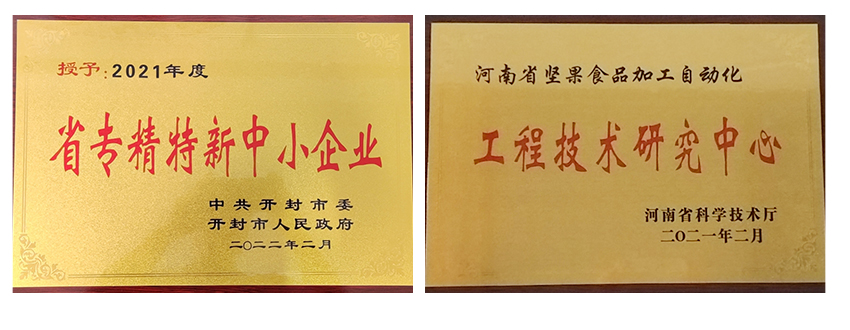 授予:2021年度
省专精特新中小企业
中共开封市委
开封市人民政府
二〇二二年二月
河南省坚果食品加工自动化
工程技术研究中心
河南省科学技术厅
二〇二一年二月